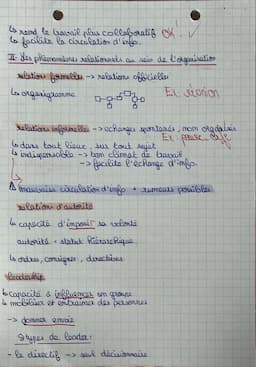 ↳ rend le travail plus collaboratif OK !
↳ facilite la circulation d'info.
II - des phénomènes relationnels au sein de l'organisation
relation formelles -> relations officielles
↳ organigramme
Ex réunion
relations informelle -> échanges spontanés, non organisés
Ex pause
↳ dans tout lieu, sur tout sujet
↳ indispensable -> bon climat de travail
-> facilite l'échange d'info.
⚠ mauvaise circulation d'info + rumeurs possibles
relations d'autorité
↳ capacité d'imposer sa volonté
autorité = statut hiérarchique
↳ ordres, consignes, directives
leadership
↳ capacité à influencer un groupe
↳ mobiliser et entraîner des personnes
-> donner envie
types de leader :
- le directif -> seul décisionnaire